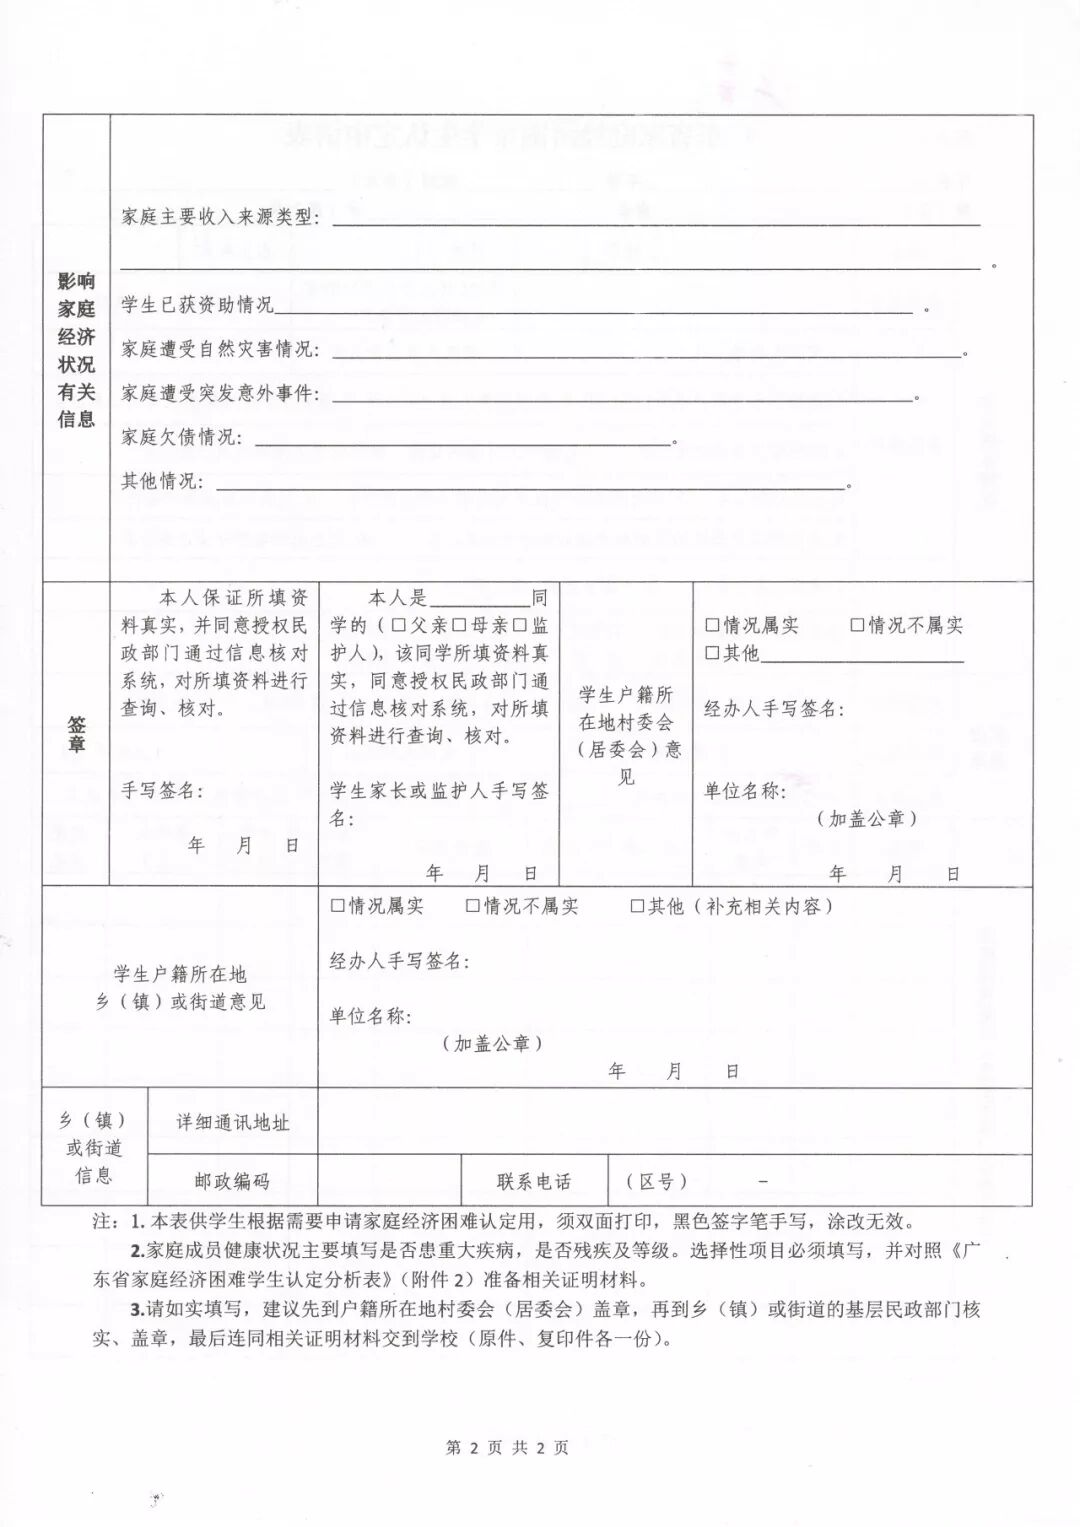 影响
家庭
经济
状况
有关
信息
家庭主要收入来源类型：
。
学生已获资助情况 。
家庭遭受自然灾害情况： 。
家庭遭受突发意外事件： 。
家庭欠债情况： 。
其他情况： 。
签
章
本人保证所填资
料真实，并同意授权民
政部门通过信息核对
系统，对所填资料进行
查询、核对。
手写签名：
年 月 日
本人是________同
学的（□父亲□母亲□监
护人），该同学所填资料真
实，同意授权民政部门通
过信息核对系统，对所填
资料进行查询、核对。
学生家长或监护人手写签
名：
年 月 日
学生户籍所
在地村委会
（居委会）意
见
□情况属实 □情况不属实
□其他
经办人手写签名：
单位名称：
（加盖公章）
年 月 日
学生户籍所在地
乡（镇）或街道意见
□情况属实 □情况不属实 □其他（补充相关内容）
经办人手写签名：
单位名称：
（加盖公章）
年 月 日
乡（镇）
或街道
信息
详细通讯地址
邮政编码
联系电话
（区号） -
注：1. 本表供学生根据需要申请家庭经济困难认定用，须双面打印，黑色签字笔手写，涂改无效。
2.家庭成员健康状况主要填写是否患重大疾病，是否残疾及等级。选择性项目必须填写，并对照《广
东省家庭经济困难学生认定分析表》（附件 2）准备相关证明材料。
3.请如实填写，建议先到户籍所在地村委会（居委会）盖章，再到乡（镇）或街道的基层民政部门核
实、盖章，最后连同相关证明材料交到学校（原件、复印件各一份）。
第 2 页 共 2 页